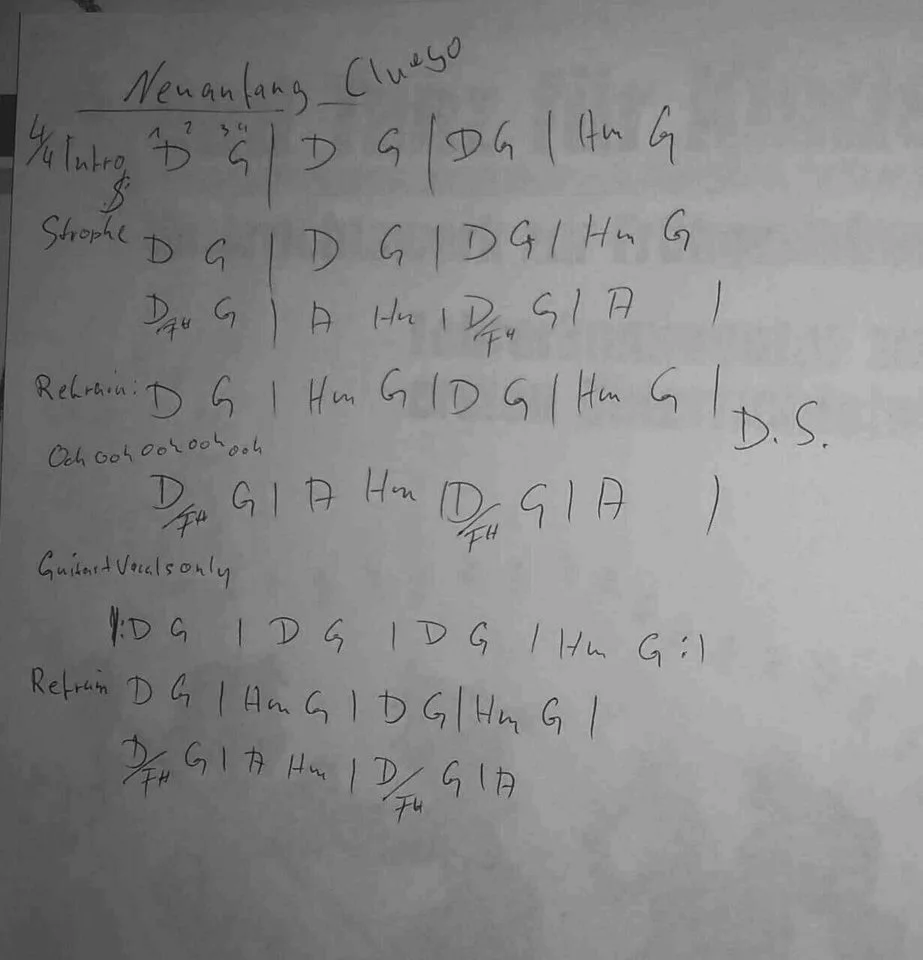 Neuanfang Clueso
4/4 Intro 1 2 3 4 D G | D G | D G | Hm G
Strophe D G | D G | D G | Hm G
D/F# G | A Hm | D/F# G | A |
Refrain: D G | Hm G | D G | Hm G | D.S.
Ooh ooh ooh ooh ooh
D/F# G | A Hm | D/F# G | A |
Guitar+Vocals only
|: D G | D G | D G | Hm G :|
Refrain D G | Hm G | D G | Hm G |
D/F# G | A Hm | D/F# G | A